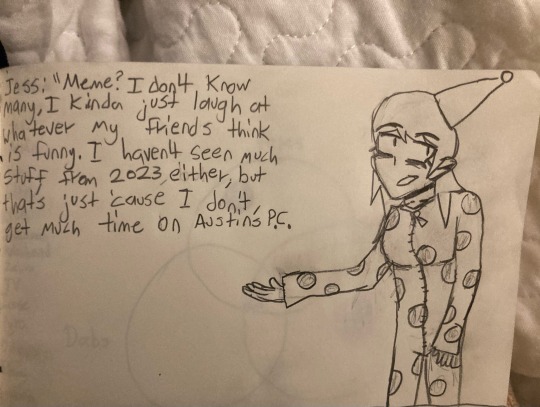 Jess: "Meme? I don't know
many, I kinda just laugh at
whatever my friends think
is funny. I haven't seen much
stuff from 2023, either, but
that's just 'cause I don't
get much time on Austin's P.C.